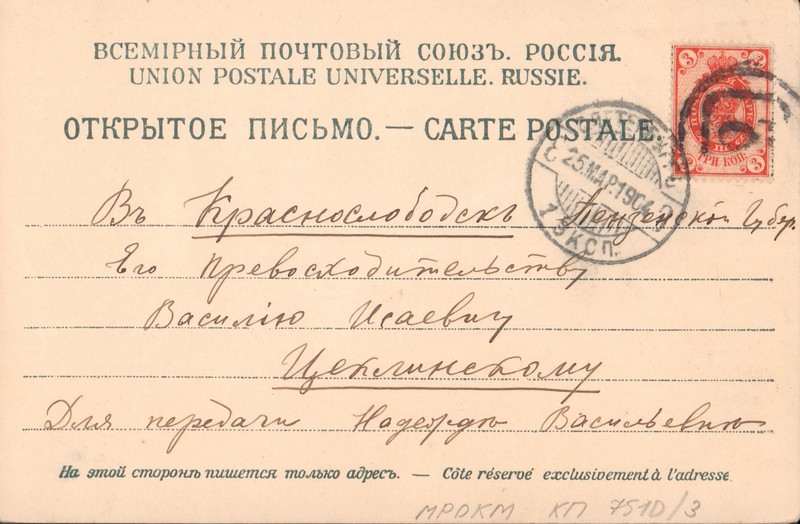 ВСЕМІРНЫЙ ПОЧТОВЫЙ СОЮЗЪ. РОССІЯ.
UNION POSTALE UNIVERSELLE. RUSSIE.
ОТКРЫТОЕ ПИСЬМО. — CARTE POSTALE.
3 3
ТРИ КОП.
3
25 МАР 1904
1 ЭКСП.
Въ Краснослободскъ Пензенской Губер.
Его Превосходительству
Василію Исаевичу
Цеклинскому
Для передачи Надеждѣ Васильевнѣ
На этой сторонѣ пишется только адресъ. — Côte réservé exclusivement à l'adresse.
МРОКМ КП 7510/3